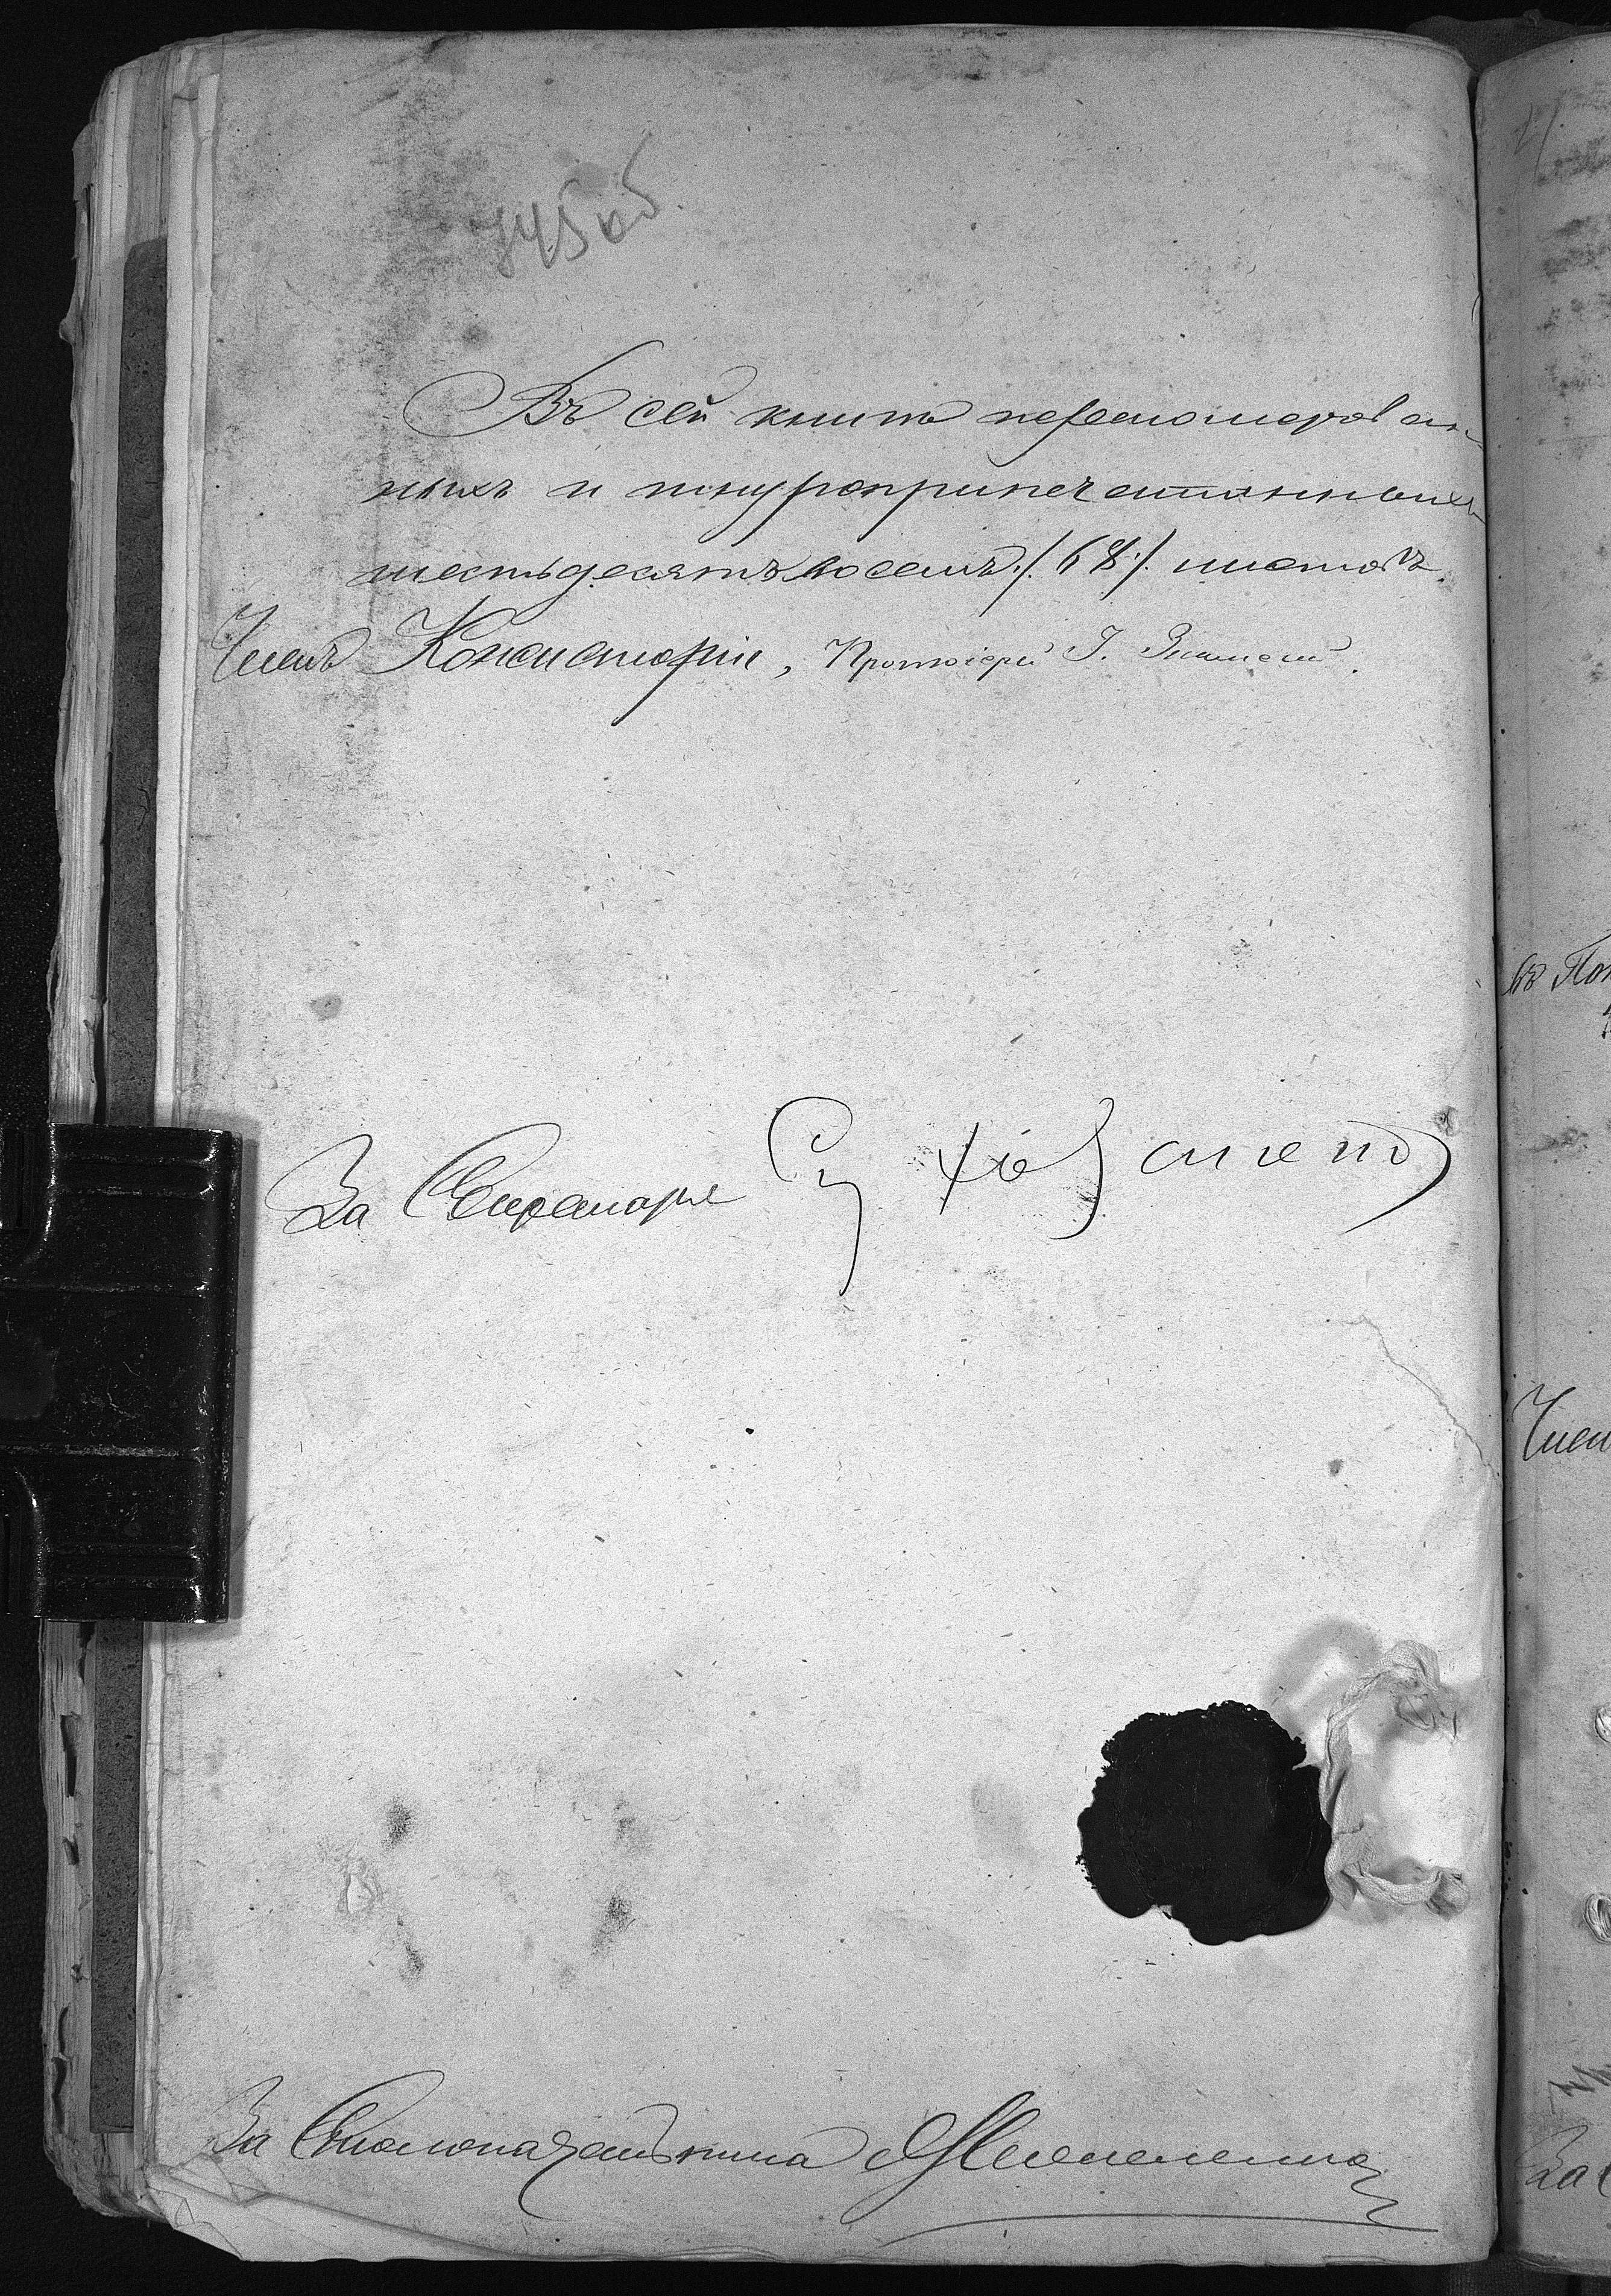 745об.
Въ сей книгѣ перенумерован-
ныхъ и шнуроприпечатанныхъ
шестьдесятъ восемь /:68:/ листовъ.
Членъ Консисторіи, Протоіерей І.
За Секретаря
За Столоначальника
въ Пок
Член
За С